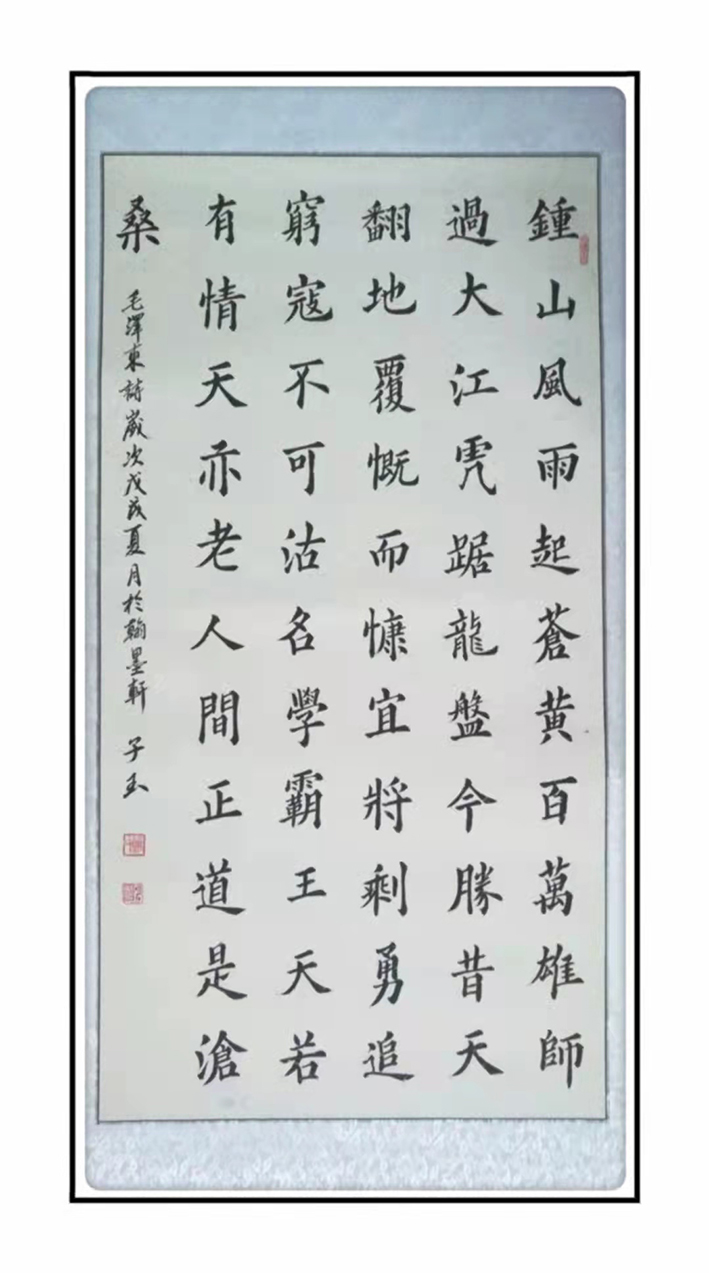 鍾山風雨起蒼黄百萬雄師
過大江虎踞龍盤今勝昔天
翻地覆慨而慷宜將剩勇追
窮寇不可沽名學霸王天若
有情天亦老人間正道是滄
桑
毛澤東詩歲次戊戌夏月於翰墨軒 子玉